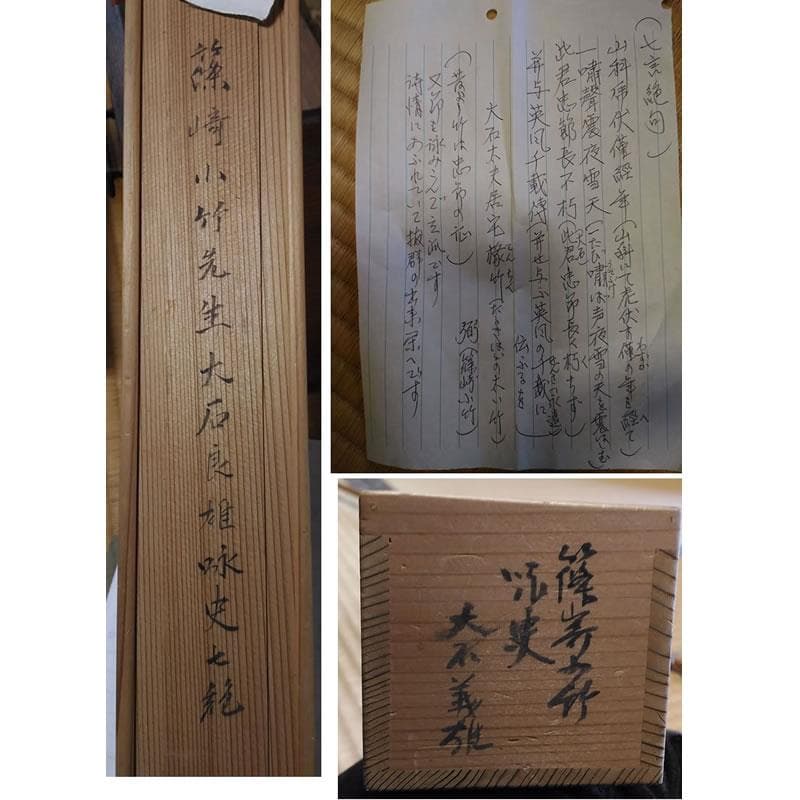 篠崎小竹先生大石良雄咏史七絶
(七言絶句)
山科虎伏僅経年(山科にて虎伏す僅の年を経て)
わずか
一嘯聲震夜雪天(一たび嘯けば声夜雪の天を震わしむ)
此君忠節長不朽(此君忠節長く朽ちず)
大石
併与英風千載傳(併せ与ふ英風の千載に
伝ふるを
大石太夫居宅
弼(篠崎小竹)
(昔より竹は忠節の証)
又節も詠みこんで立派です
詩情にあふれていて抜群の出来栄へです
篠崎小竹
咏史
大石義雄